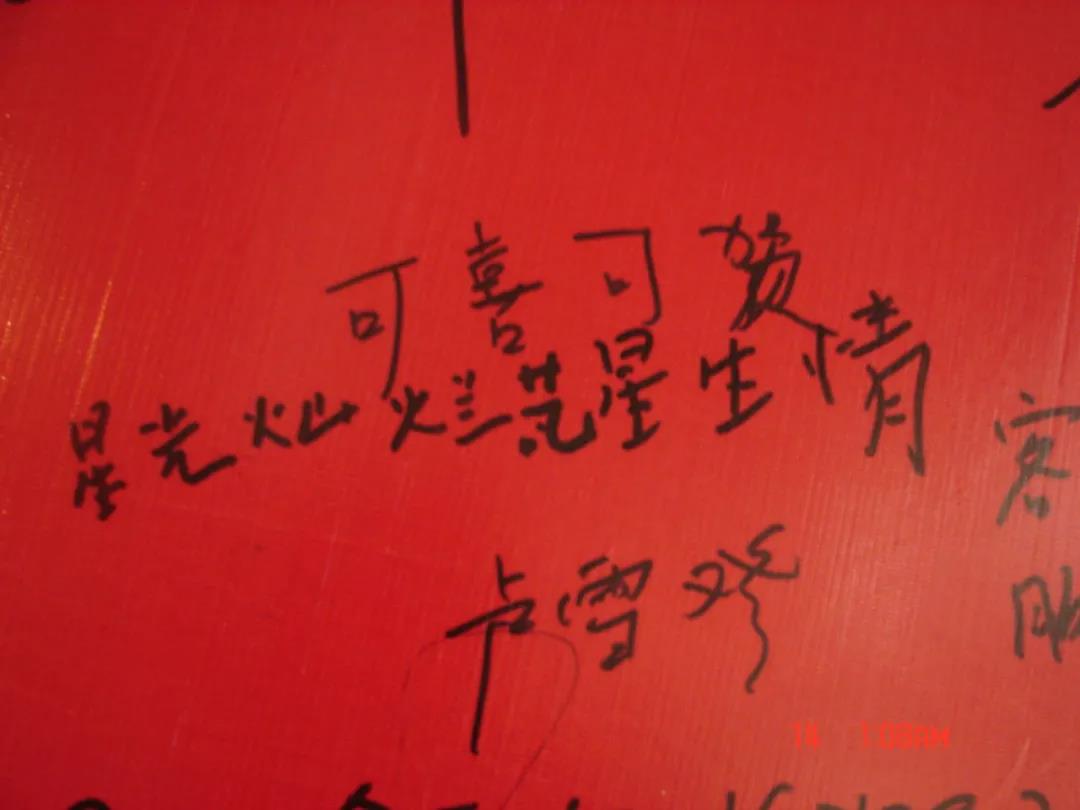 可喜可贺
星光灿烂是星生情
卢雪
客
14 1:08AM